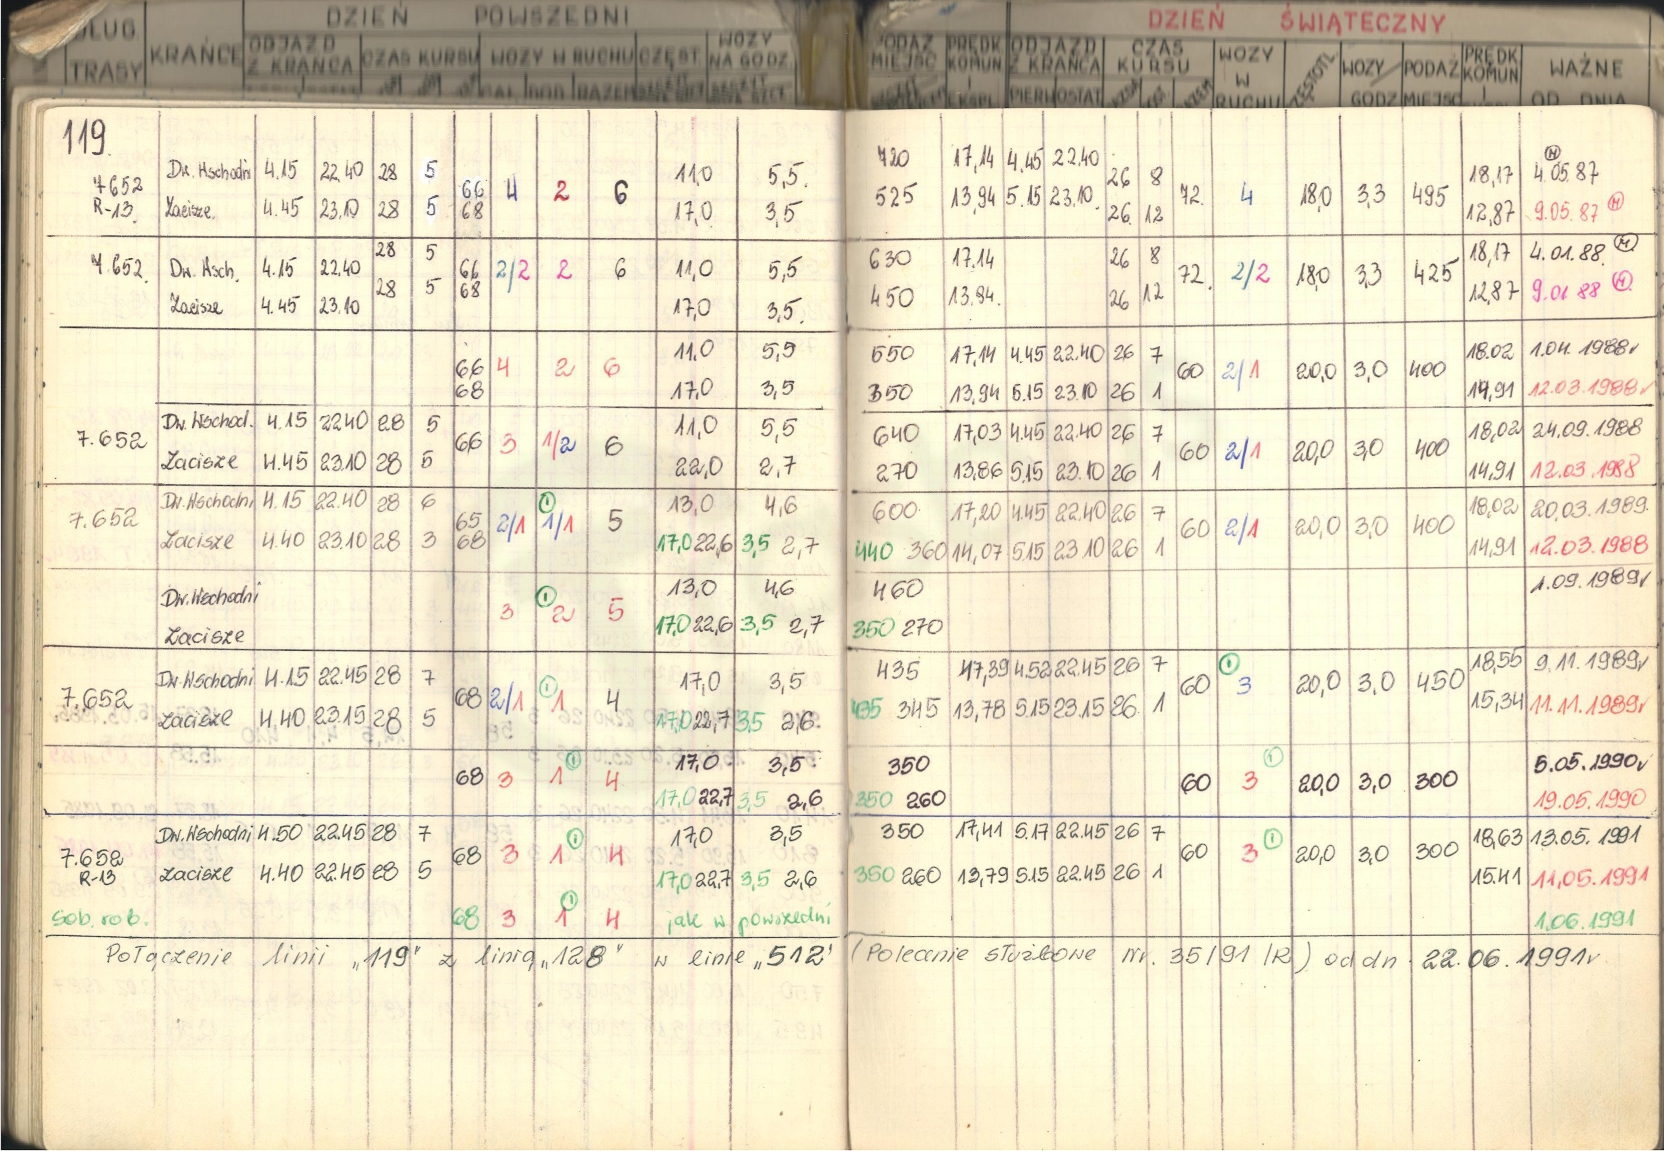 DZIEŃ POWSZEDNI DZIEŃ ŚWIĄTECZNY
DŁUG. TRASY KRAŃCE ODJAZD Z KRAŃCA CZAS KURSU WOZY W RUCHU CZĘST WOZY NA GODZ. PODAŻ MIEJSC PRĘDK KOMUN ODJAZD Z KRAŃCA CZAS KURSU WOZY W RUCHU WOZY GODZ PODAŻ MIEJSC PRĘDK KOMUN WAŻNE OD DNIA
119
Dw. Wschodni 4.15 22.40 28 5 11,0 5,5 720 17,14 4.45 22.40 26 8 18,17 4.05.87 (M)
7.652 R-13 66 68 4 2 6 72 4 18,0 3,3 495
Zacisze 4.45 23.10 28 5 17,0 3,5 525 13,94 5.15 23.10 26 12 12,87 9.05.87 (M)
7.652 Dw. Wsch. 4.15 22.40 28 5 66 2/2 2 6 11,0 5,5 630 17.14 26 8 72 2/2 18,0 3,3 425 18,17 4.01.88 (M)
Zacisze 4.45 23.10 28 5 68 17,0 3,5 450 13,94 26 12 12,87 9.01.88 (M)
66 4 2 6 11,0 5,5 550 17,14 4.45 22.40 26 7 60 2/1 20,0 3,0 400 18.02 1.04.1988r
68 17,0 3,5 350 13,94 5.15 23.10 26 1 14,91 12.03.1988r
7.652 Dw. Wschod. 4.15 22.40 28 5 66 5 1/2 6 11,0 5,5 640 17,03 4.45 22.40 26 7 60 2/1 20,0 3,0 400 18,02 24.09.1988
Zacisze 4.45 23.10 28 5 22,0 2,7 270 13,86 5.15 23.10 26 1 14,91 12.03.1988
7.652 Dw. Wschodni 4.15 22.40 28 6 65 2/1 1/1 (1) 5 13,0 4,6 600 17,20 4.45 22.40 26 7 60 2/1 20,0 3,0 400 18,02 20.03.1989
Zacisze 4.40 23.10 28 3 68 17,0 22,6 3,5 2,7 440 360 14,07 5.15 23.10 26 1 14,91 12.03.1988
Dw. Wschodni 3 2 (1) 5 13,0 4,6 460 1.09.1989r
Zacisze 17,0 22,6 3,5 2,7 350 270
7.652 Dw. Wschodni 4.15 22.45 28 7 68 2/1 1 (1) 4 17,0 3,5 435 17,39 4.52 22.45 26 7 60 3 (1) 20,0 3,0 450 18,55 9.11.1989r
Zacisze 4.40 23.15 28 5 17,0 22,7 3,5 2,6 435 345 13,78 5.15 23.15 26 1 15,34 11.11.1989r
68 3 1 (1) 4 17,0 3,5 350 60 3 (1) 20,0 3,0 300 5.05.1990r
17,0 22,7 3,5 2,6 350 260 19.05.1990
7.652 R-13 Dw. Wschodni 4.50 22.45 28 7 68 3 1 (1) 4 17,0 3,5 350 17,41 5.17 22.45 26 7 60 3 (1) 20,0 3,0 300 18,63 13.05.1991
Zacisze 4.40 22.45 28 5 17,0 22,7 3,5 2,6 350 260 13,79 5.15 22.45 26 1 15.41 11.05.1991
Sob. rob. 68 3 1 (1) 4 jak w powszedni 1.06.1991
Połączenie linii „119" z linią „128" w linie „512" (Polecenie służbowe Nr. 35/91/R) od dn. 22.06.1991r